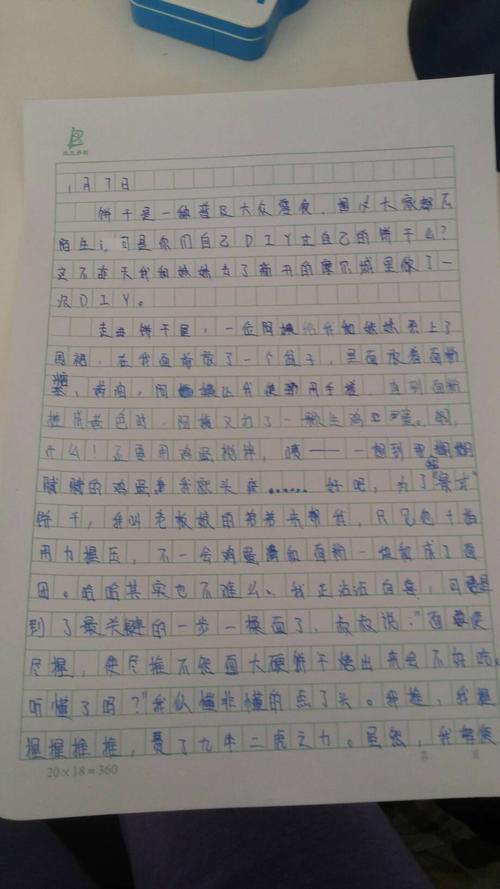 1月7日
饼干是一种普及大众零食，想必大家都不
陌生，可是你们自己DIY过自己的饼干么？
这不昨天我和妹妹去了新开的摩尔城里做了一
次DIY。
走进饼干屋，一位阿姨给我和妹妹系上了
围裙，在我面前放了一个盆子，里面放着面粉
糖、黄油，阿姨让我使劲用手搓，直到面粉
搓成黄色时，阿姨又打了一颗生鸡蛋。啊，
什么！还要用鸡蛋搅拌，咦——一想到那糊糊
腻腻的鸡蛋我就头疼……好吧，为了"美食"
饼干，我叫老板娘的爷爷来帮我，只见他十指
用力握压，不一会鸡蛋黄和面粉一块被揉了面
团。哈哈其实也不难么、我正沾沾自喜，可是
到了最关键的一步—揉面了，叔叔说："面要使
尽握，使尽推不然面太硬饼干烤出来会不好吃
听懂了吗？"我似懂非懂的点了头。我推，我握
握握推推，费了九牛二虎之力。虽然，我努使
20×18=360
第 页